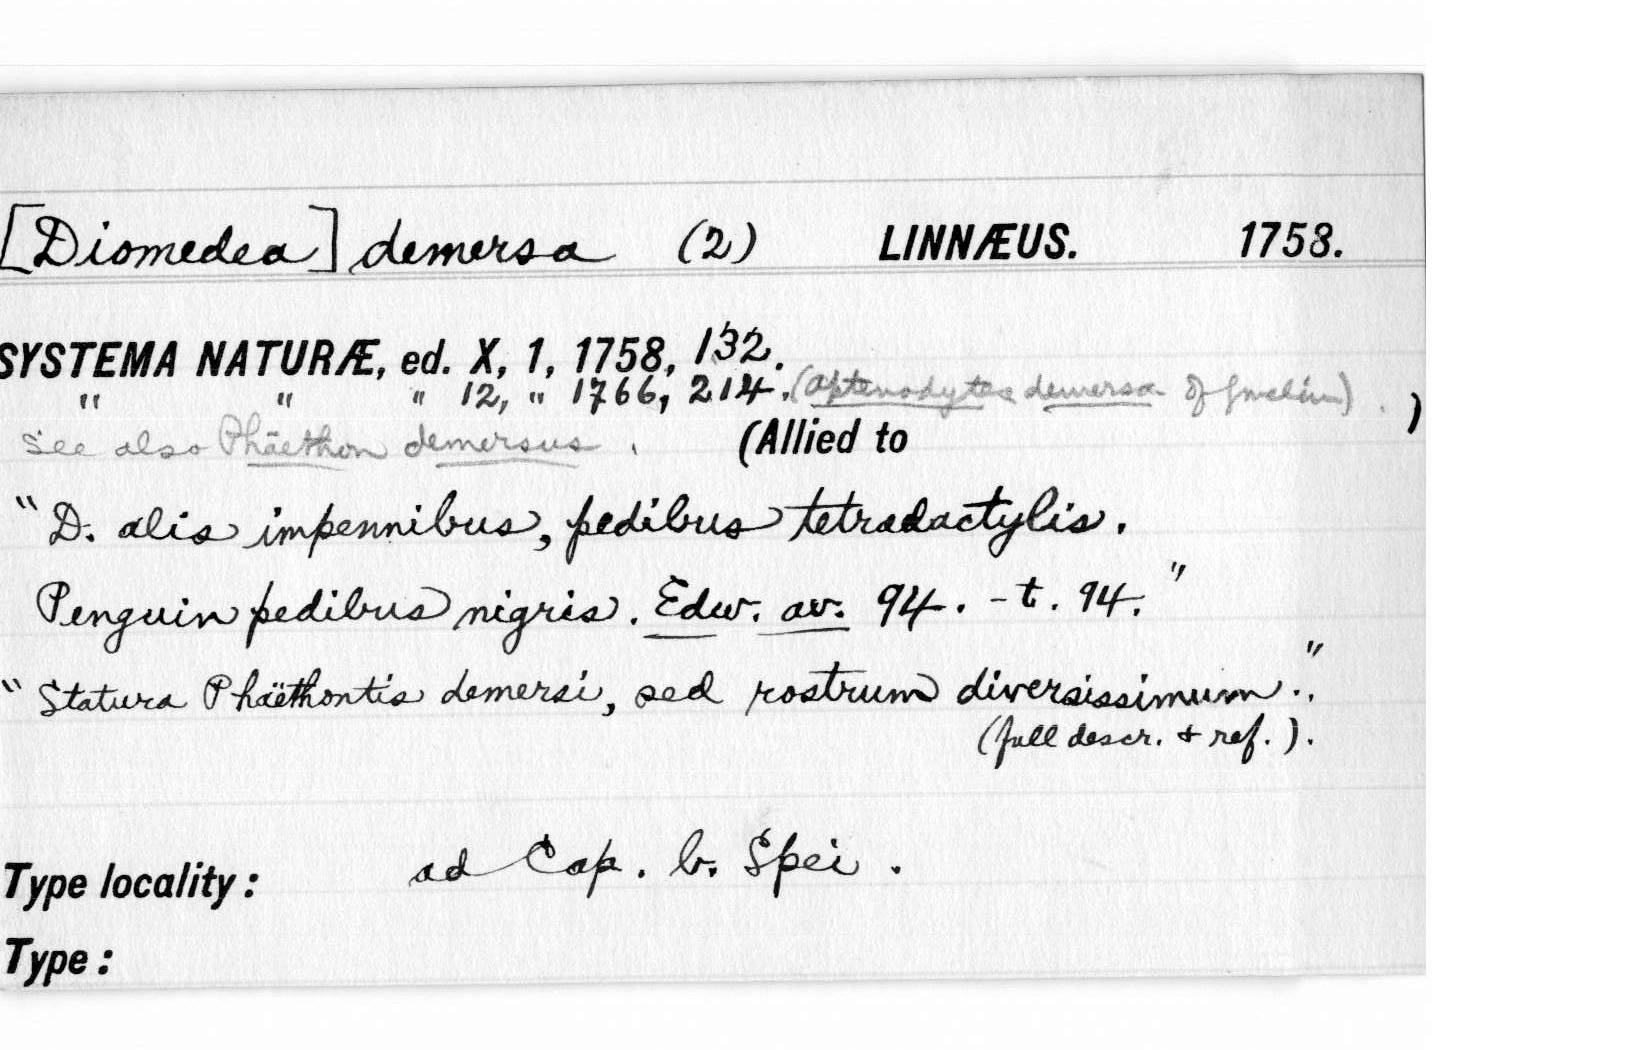 [Diomedea] demersa (2) LINNÆUS. 1758.
SYSTEMA NATURÆ, ed. X, 1, 1758, 132.
" " " 12, " 1766, 214. (Aptenodytes demersa of Gmelin) . )
See also Phäethon demersus . (Allied to
"D. alis impennibus, pedibus tetradactylis.
Penguin pedibus nigris. Edw. av. 94. - t. 94."
"Statura Phäethontis demersi, sed rostrum diversissimum.."
(full descr. & ref.).
Type locality: ad Cap. b. Spei .
Type: